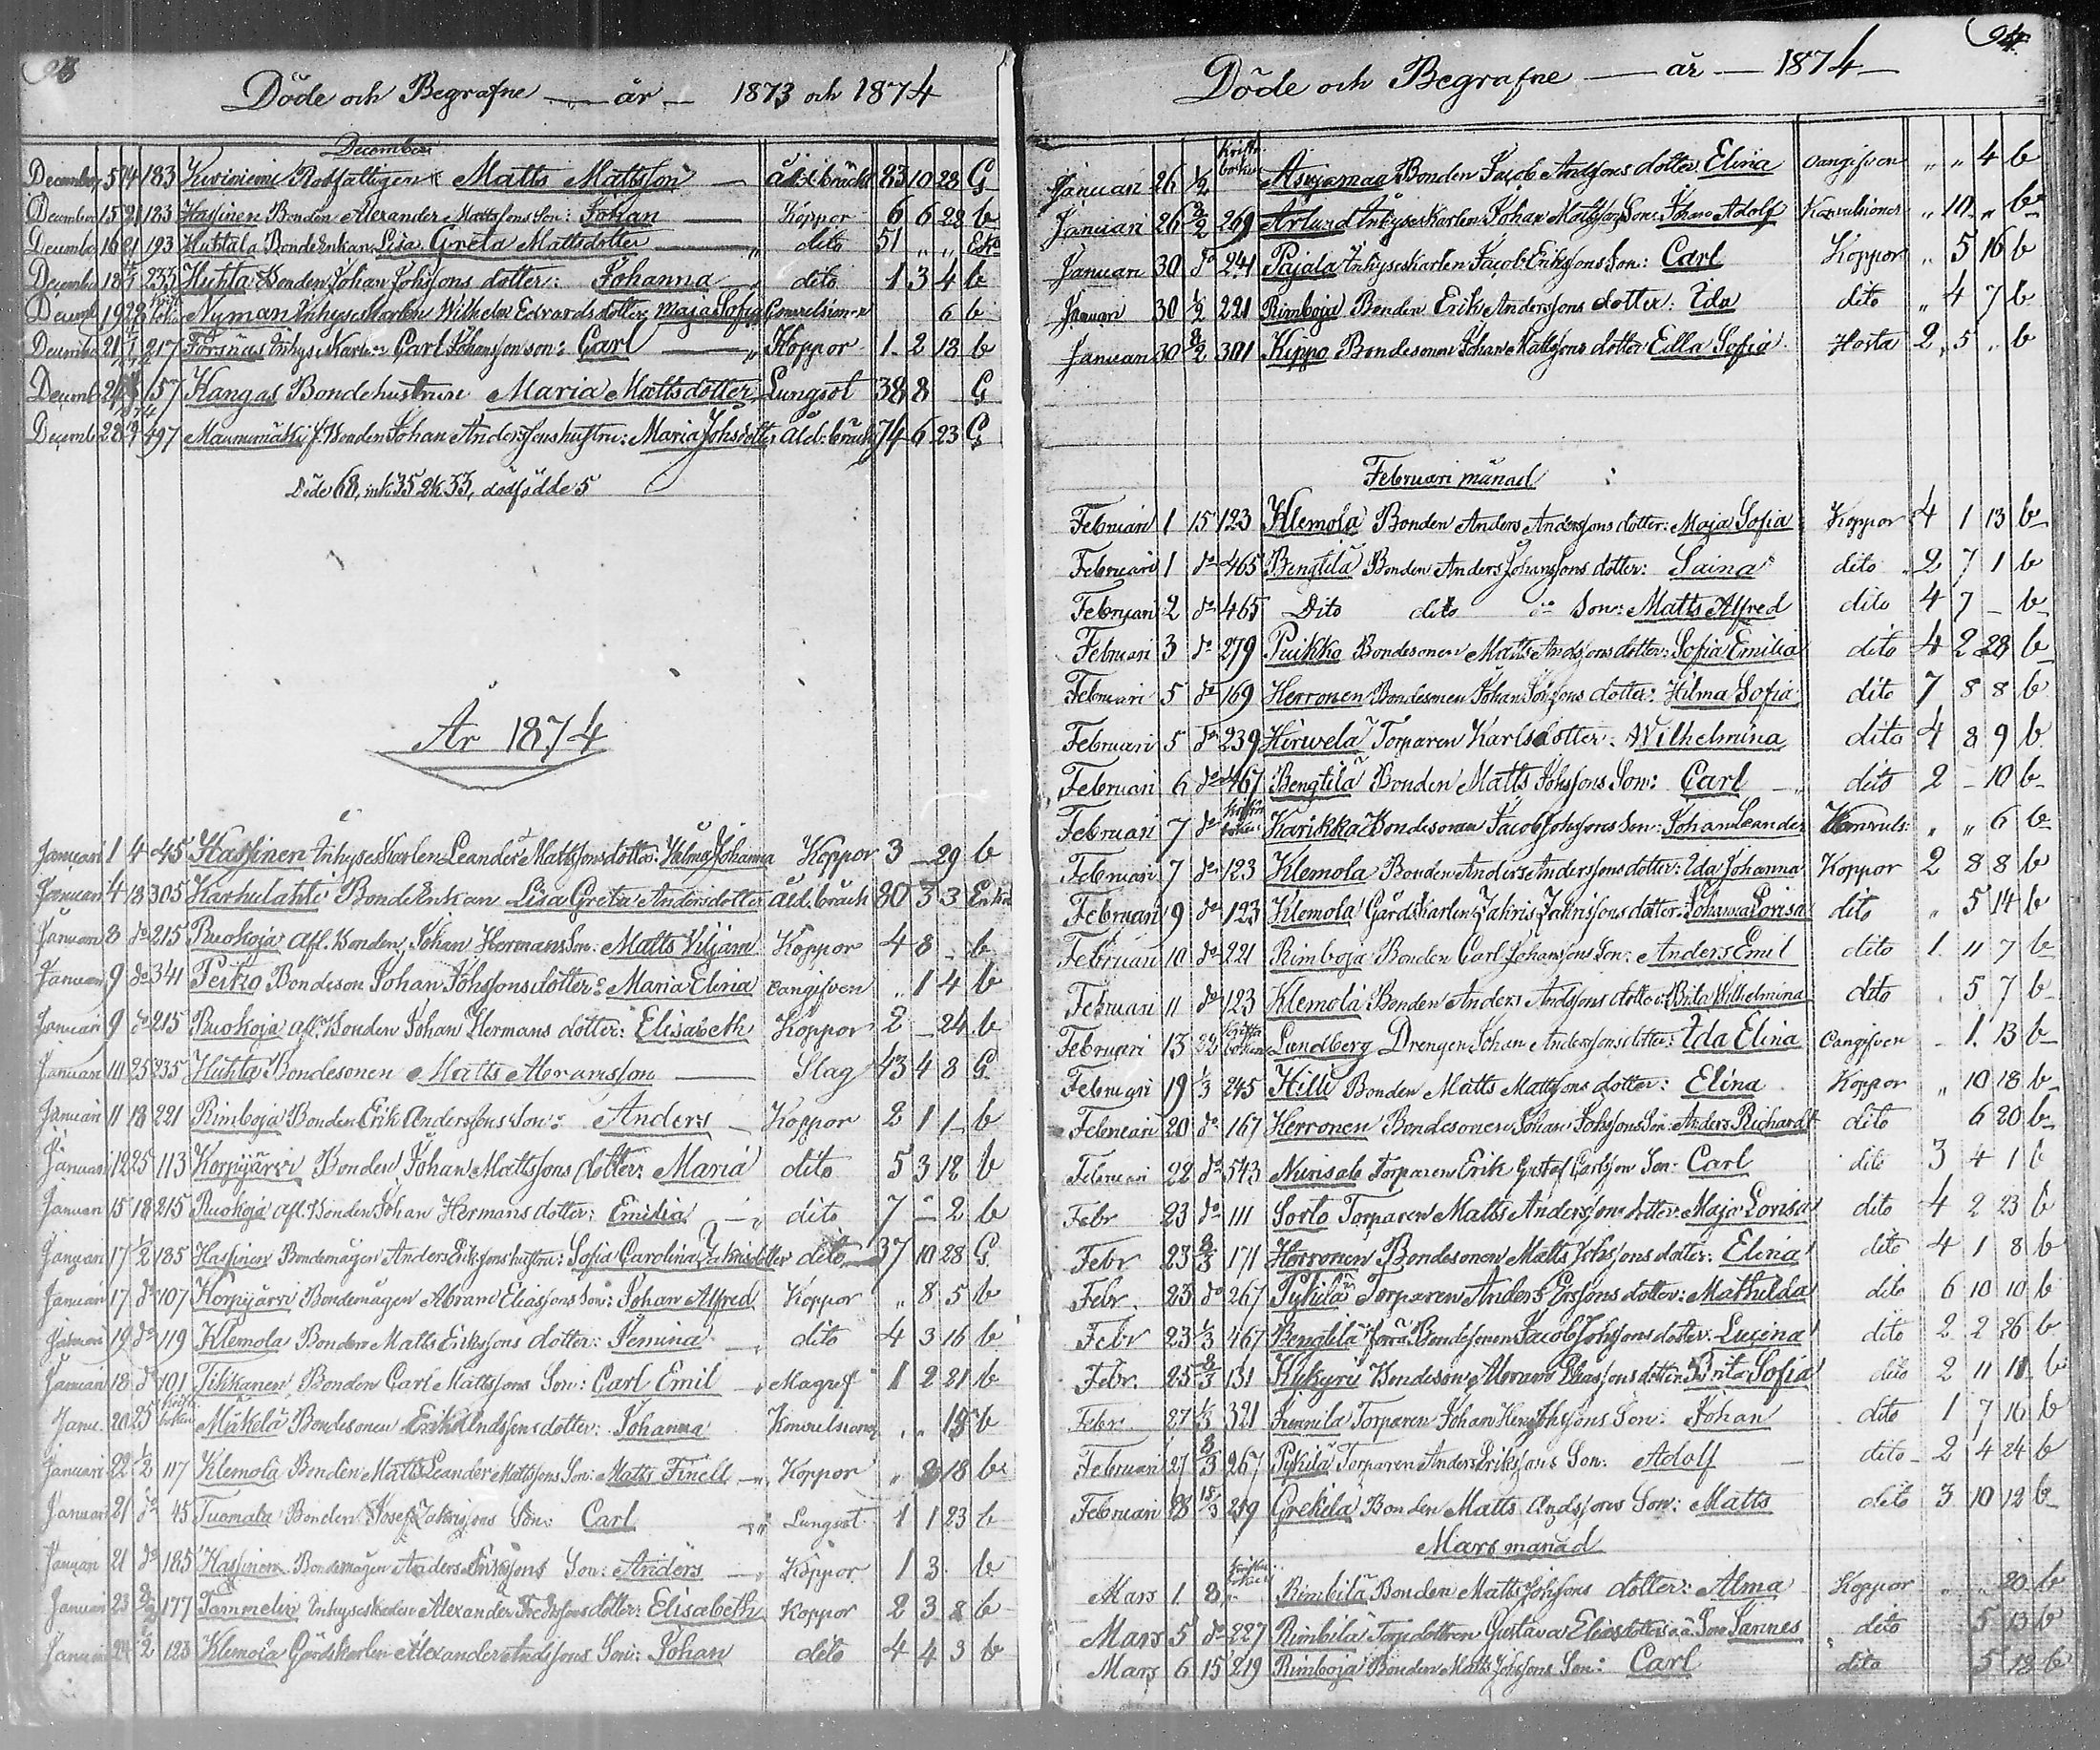 93
Döde och Begrafne — år — 1873 och 1874
December
December 5 14 183 Kiviniemi Rotfattigen Matts Mattsson — ål: bräckl 83 10 28 G
December 15 21 183 Hassinen Bonden Alexander Mattssons Son: Johan — Koppor 6 6 28 b
December 16 21 193 Huhtala Bondeenkan Lisa Greta Mattsdotter — dito 51 „ „ Enk
December 18 1/1 233 Huhta Bonden Johan Johssons dotter: Johanna dito 1 3 4 b
Decemb 19 28 Nyman Inhyseskarlen Wilhelm Edvards dotter Maja Sofia Convulsioner 6 b
December 21 1/1 217 Forsnäs Inhyseskarlen Carl Johansson son: Carl — Koppor 1 2 18 b
Decemb 24 157 Kangas Bondehustrun Maria Mattsdotter Lungsot 38 8 G
1874
Decemb 28 497 Maunumäki f. Bonden Johan Anderssons hustru: Maria Johsdotter åld: bräckl 74 6 23 G
Döde 68, mk 35 qk 33, dödfödde 5
År 1874
Januari 1 4 45 Hassinen Inhyseskarlen Leander Mattssons dotter: Hilma Johanna Koppor 3 — 29 b
Januari 4 18 305 Karhulahti Bondeenkan Lisa Greta Andersdotter åld. bräckl 80 3 3 Enka
Januari 8 do 215 Ruokoja afl. Bonden Johan Hermans Son: Matts Viljam Koppor 4 8 — b
Januari 9 do 341 Peiko Bondeson Johan Johssons dotter: Maria Elina oangifven „ 1 4 b
Januari 9 do 215 Ruokoja afl. Bonden Johan Hermans dotter: Elisabeth Koppor 2 — 24 b
Januari 11 25 235 Huhta Bondesonen Matts Abramsson — Slag 43 4 8 G
Januari 11 18 221 Rimboja Bonden Erik Anderssons Son: Anders — Koppor 2 1 1 b
Januari 12 25 113 Korpijärvi Bonden Johan Mattssons dotter: Maria dito 5 3 12 b
Januari 15 18 215 Ruokoja afl. Bonden Johan Hermans dotter: Emilia dito 7 — 2 b
Januari 17 1/2 185 Hassinen Bondemågen Anders Erikssons hustru: Sofia Carolina Zakrisdotter dito 37 10 28 G
Januari 17 do 107 Korpijärvi Bondemågen Abram Eliassons Son: Johan Alfred Koppor „ 8 5 b
Januari 19 do 119 Klemola Bonden Matts Erikssons dotter: Femina dito 4 3 16 b
Januari 18 do 101 Tikkanen Bonden Carl Mattssons Son: Carl Emil „ Magref 1 2 21 b
Janu. 20 25 Mäkelä Bondesonen Erik Andssons dotter: Johanna Konvulsioner „ „ 18 b
Januari 22 1/2 117 Klemola Bonden Matts Leander Mattssons Son: Matts Finell — Koppor „ 18 b
Januari 21 do 45 Tuomala Bonden Josef Zakrissons Son: Carl Lungsot 1 1 23 b
Januari 21 do 185 Hassinen Bondemågen Anders Erikssons Son: Anders — Koppor 1 3 b
Januari 23 177 Tammelin Inhyseskarlen Alexander Fredssons dotter: Elisabeth Koppor 2 3 8 b
Januari 24 123 Klemola Gårdskarlen Alexander Andssons Son: Johan dito 4 4 3 b
94
Döde och Begrafne — år — 1874
Januari 26 1/2 Kristn. boken Bonden Jacob Andssons dotter Elina Oangifven „ „ 4 b
Januari 26 269 Inhyseskarlen Johan Mattsson Son: Johan Adolf Konvulsioner „ 10 „ b
Januari 30 do 241 Pajala Inhyseskarlen Jacob Erikssons Son: Carl Koppor „ 5 16 b
Januari 30 1/2 221 Rimboja Bonden Erik Anderssons dotter: Ida dito „ 4 7 b
Januari 30 8/2 301 Kippo Bondesonen Johan Mattssons dotter Edla Sofia Hosta 2 5 „ b
Februari månad
Februari 1 15 123 Klemola Bonden Anders Anderssons dotter: Maja Sofia Koppor 4 1 13 b
Februari 1 do 465 Bengtilä Bonden Anders Johanssons dotter: Saina dito 2 7 1 b
Februari 2 do 465 Dito dito do Son: Matts Alfred dito 4 7 — b
Februari 3 do 279 Puikko Bondesonen Matts Andssons dotter: Sofia Emilia dito 4 2 28 b
Februari 5 do 169 Herronen Bondesonen Johan Johssons dotter: Hilma Sofia dito 7 8 8 b
Februari 5 do 239 Hirwelä Torparen Karls dotter: Wilhelmina dito 4 8 9 b
Februari 6 do 467 Bengtilä Bonden Matts Johssons Son: Carl dito 2 — 10 b
Februari 7 do Kristn boken Karikka Bondesonen Jacob Johssons Son: Johan Leander Konvuls: „ „ 6 b
Februari 7 do 123 Klemola Bonden Anders Anderssons dotter: Ida Johanna Koppor 2 8 8 b
Februari 9 do 123 Klemola Gårdskarlen Zakris Zakrissons dotter: Johanna Lovisa dito „ 5 14 b
Februari 10 do 221 Rimboja Bonden Carl Johanssons Son: Anders Emil dito 1 11 7 b
Februari 11 do 123 Klemola Bonden Anders Andssons dotter: Brita Wilhelmina dito . 5 7 b
Februari 13 22 Kristn boken Lundberg Drengen Johan Anderssons dotter: Ida Elina Oangifven — 1 13 b
Februari 19 1/3 245 Hilli Bonden Matts Mattssons dotter: Elina Koppor „ 10 18 b
Februari 20 do 167 Herronen Bondesonen Johan Johssons Son: Anders Richardt dito 6 20 b
Februari 22 do 543 Torparen Erik Gustaf Carlsson Son: Carl dito 3 4 1 b
Febr 23 do 111 Sorto Torparen Matts Anderssons dotter: Maja Lovisa dito 4 2 23 b
Febr 23 8/3 171 Herronen Bondesonen Matts Johssons dotter: Elina dito 4 1 8 b
Febr. 23 do 267 Pykilä Torparen Anders Erssons dotter: Mathilda dito 6 10 10 b
Febr 23 1/3 467 Bengtilä Bondesonen Jacob Johssons dotter: Lucina dito 2 2 26 b
Febr. 25 8/3 131 Kykyri Bondeson Abram Eliassons dotter: Brita Sofia dito 2 11 11 b
Febr. 27 1/3 321 Torparen Johan Johssons Son: Johan dito 1 7 16 b
Februari 27 8/3 267 Pykilä Torparen Anders Erikssons Son: Adolf — dito 2 4 24 b
Februari 28 15/3 259 Grekilä Bonden Matts Andssons Son: Matts dito 3 10 12 b
Mars månad
Mars 1 8 Rimbilä Bonden Matts Johssons dotter: Alma Koppor „ „ 20 b
Mars 5 do 227 Rimbilä Gustava Eliasdotters Son Sannes dito 5 13 b
Mars 6 15 219 Rimboja Bonden Matts Johssons Son: Carl dito 5 12 b